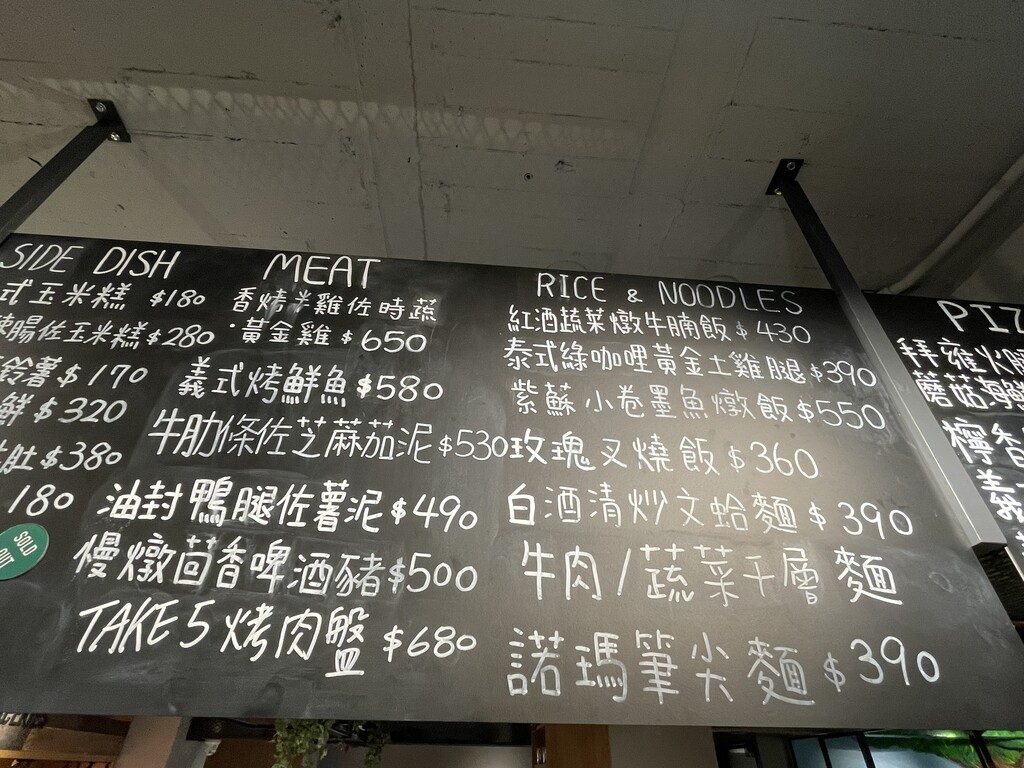 SIDE DISH
式玉米糕 $180
腸佐玉米糕 $280
鈴薯 $170
鮮 $320
肚 $380
180
SOLD
MEAT
香烤半雞佐時蔬
·黃金雞 $650
義式烤鮮魚 $580
牛肋條佐芝麻茄泥 $530
油封鴨腿佐薯泥 $490
慢燉茴香啤酒豬 $500
TAKE 5 烤肉盤 $680
RICE & NOODLES
紅酒蔬菜燉牛腩飯 $430
泰式綠咖哩黃金土雞腿 $390
紫蘇小卷墨魚燉飯 $550
玫瑰叉燒飯 $360
白酒清炒文蛤麵 $390
牛肉/蔬菜千層麵
諾瑪筆尖麵 $390
PIZ
拜雍火腿
蘑菇海鮮
檸香
義